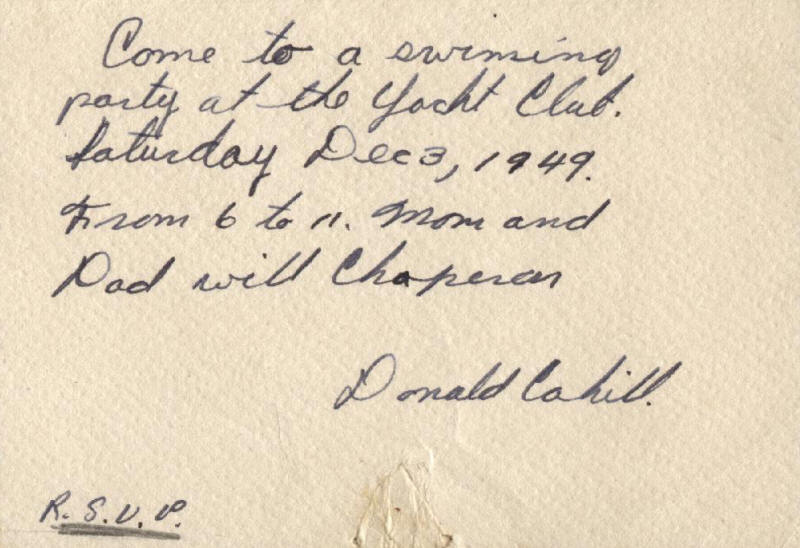 Come to a swiming
party at the Yacht Club.
Saturday Dec 3, 1949.
From 6 to 11. Mom and
Dad will Chaperon
Donald Cahill.
R.S.V.P.